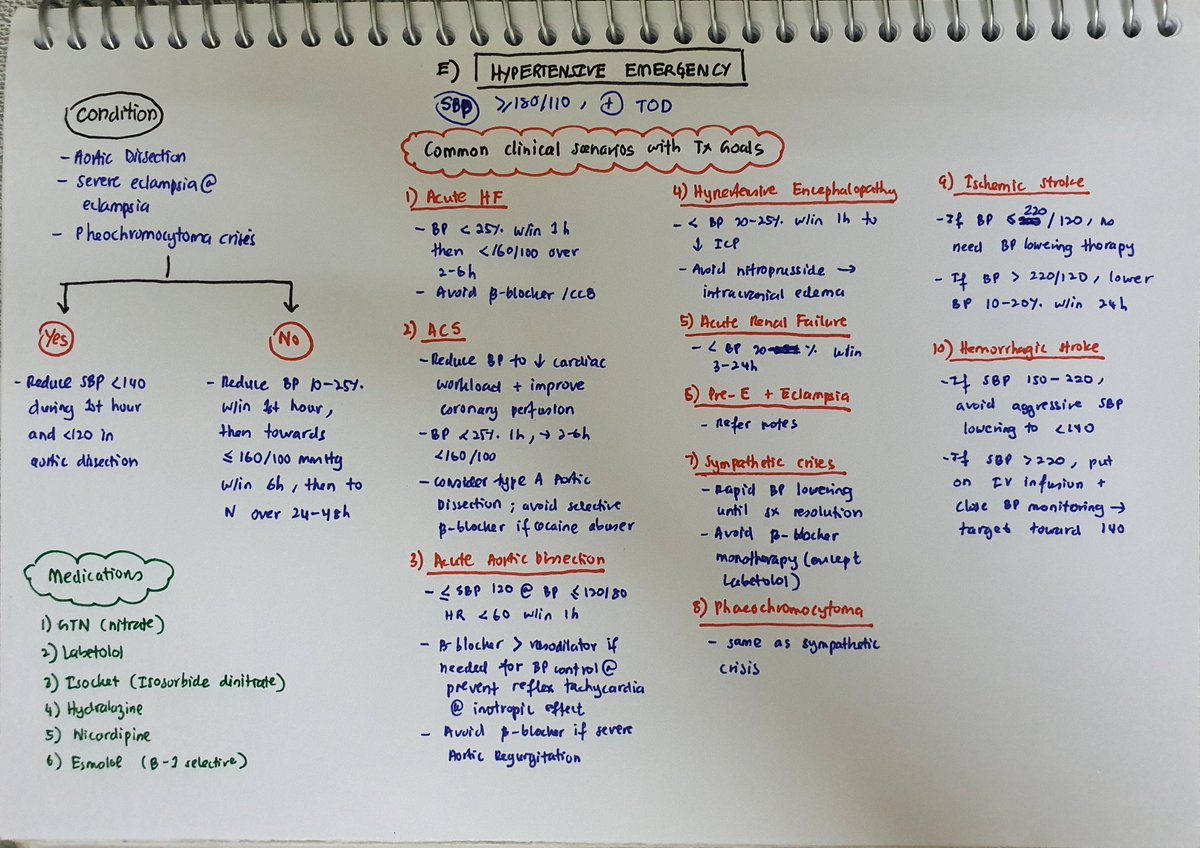 E) HYPERTENSIVE EMERGENCY
SBP ≥180/110, + TOD
Condition
- Aortic Dissection
- severe eclampsia @
eclampsia
- Pheochromocytoma crises
Yes
- Reduce SBP <140
during 1st hour
and <120 in
aortic dissection
No
- Reduce BP 10-25%
w/in 1st hour,
then towards
≤160/100 mmHg
w/in 6h, then to
N over 24-48h
Medications
1) GTN (nitrate)
2) Labetolol
3) Isocket (Isosorbide dinitrate)
4) Hydralazine
5) Nicardipine
6) Esmolol (B-1 selective)
Common clinical scenarios with Tx Goals
1) Acute HF
- BP <25% w/in 1h
then <160/100 over
2-6h
- Avoid β-blocker/CCB
2) ACS
- Reduce BP to ↓ cardiac
workload + improve
coronary perfusion
- BP <25% 1h, → 2-6h
<160/100
- consider type A Aortic
Dissection; avoid selective
β-blocker if cocaine abuser
3) Acute Aortic Dissection
- ≤ SBP 120 @ BP ≤120/80
HR <60 w/in 1h
- β-blocker > vasodilator if
needed for BP control @
prevent reflex tachycardia
@ inotropic effect
- Avoid β-blocker if severe
Aortic Regurgitation
4) Hypertensive Encephalopathy
- < BP 20-25% w/in 1h to
↓ ICP
- Avoid nitroprusside →
intracranial edema
5) Acute Renal Failure
- < BP 20 % w/in
3-24h
6) Pre-E + Eclampsia
- Refer notes
7) Sympathetic crises
- Rapid BP lowering
until sx resolution
- Avoid β-blocher
monotherapy (except
Labetolol)
8) Phaeochromocytoma
- same as sympathetic
crisis
9) Ischemic stroke
- If BP ≤ 220/120, no
need BP lowering therapy
- If BP > 220/120, lower
BP 10-20% w/in 24h
10) Hemorrhagic stroke
- If SBP 150-220,
avoid aggressive SBP
lowering to <140
- If SBP >220, put
on IV infusion +
close BP monitoring →
target toward 140